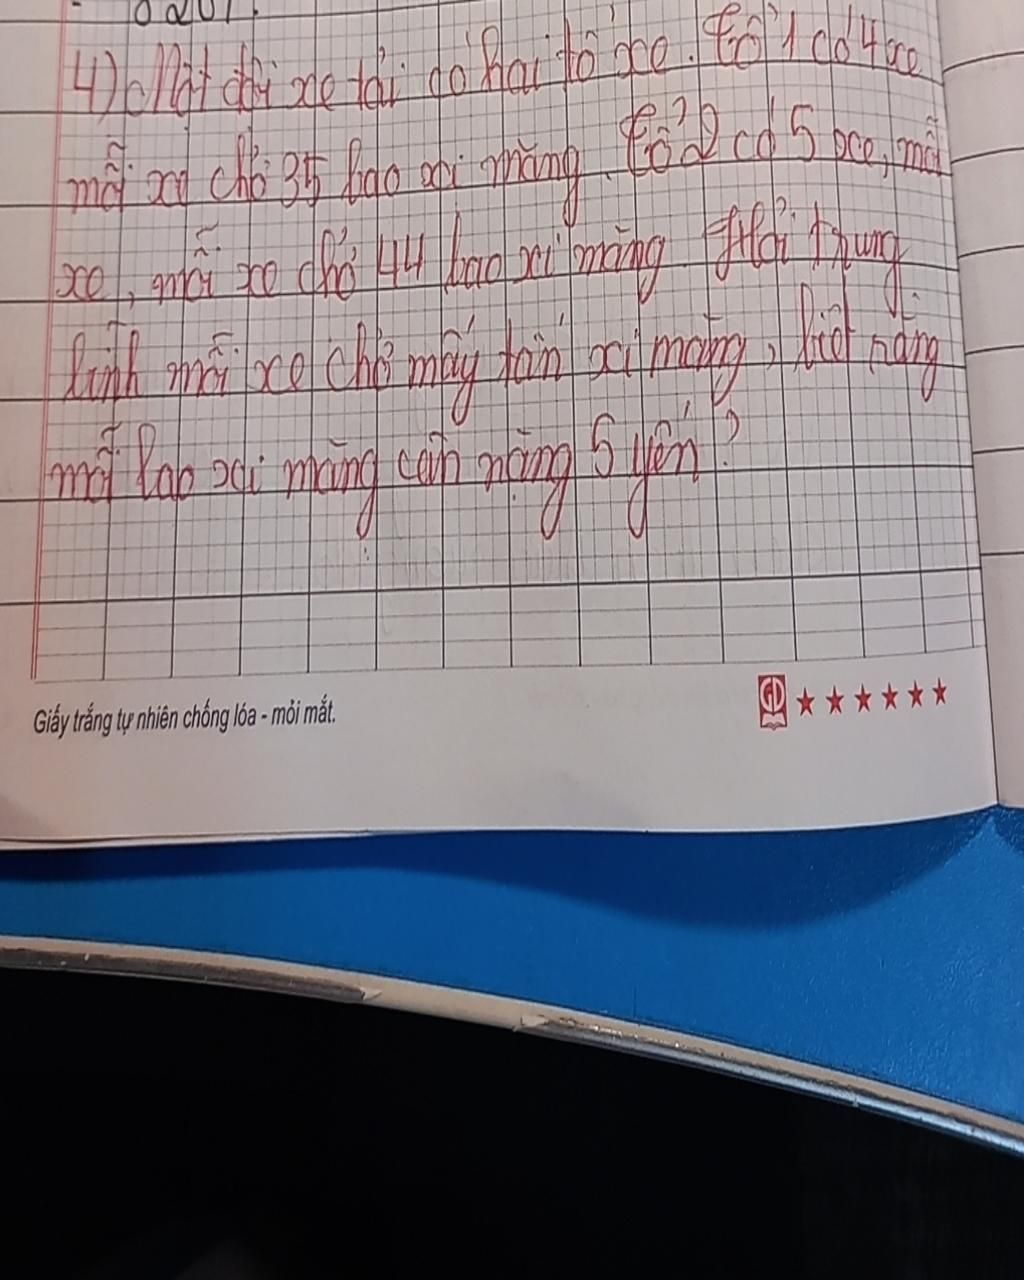 4) Một đội xe tải có hai tổ xe. Tổ 1 có 4 xe
mỗi xe chở 35 bao xi măng. Tổ 2 có 5 xe, mỗi
xe, mỗi xe chở 44 bao xi măng Hỏi trung
bình mỗi xe chở mấy tấn xi măng, biết rằng
mỗi bao xi măng cân nặng 5 yến?
Giấy trắng tự nhiên chống lóa - mỏi mắt.
GD